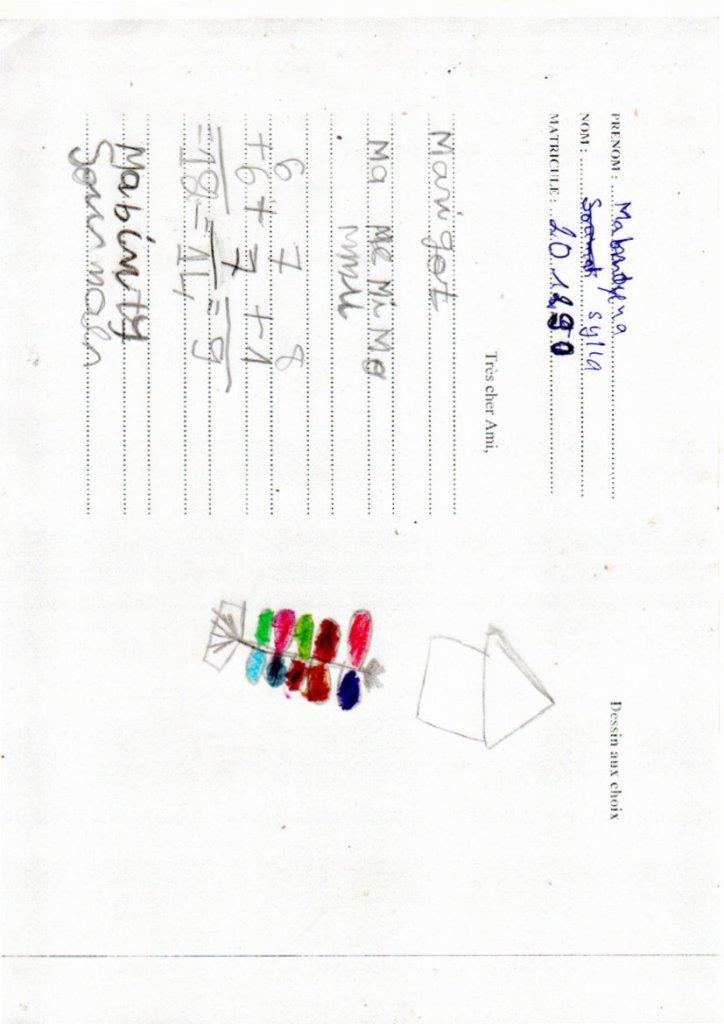 PRENOM : Mabindyena
NOM : Soumah sylla
MATRICULE : 20.1290
Très cher Ami,
Marigot
Ma Me Mi Mo
Mmu
6 7 8
+6 + 7 + 1
=12 = 14 = 9
Mabinty
Soumah
Dessin aux choix